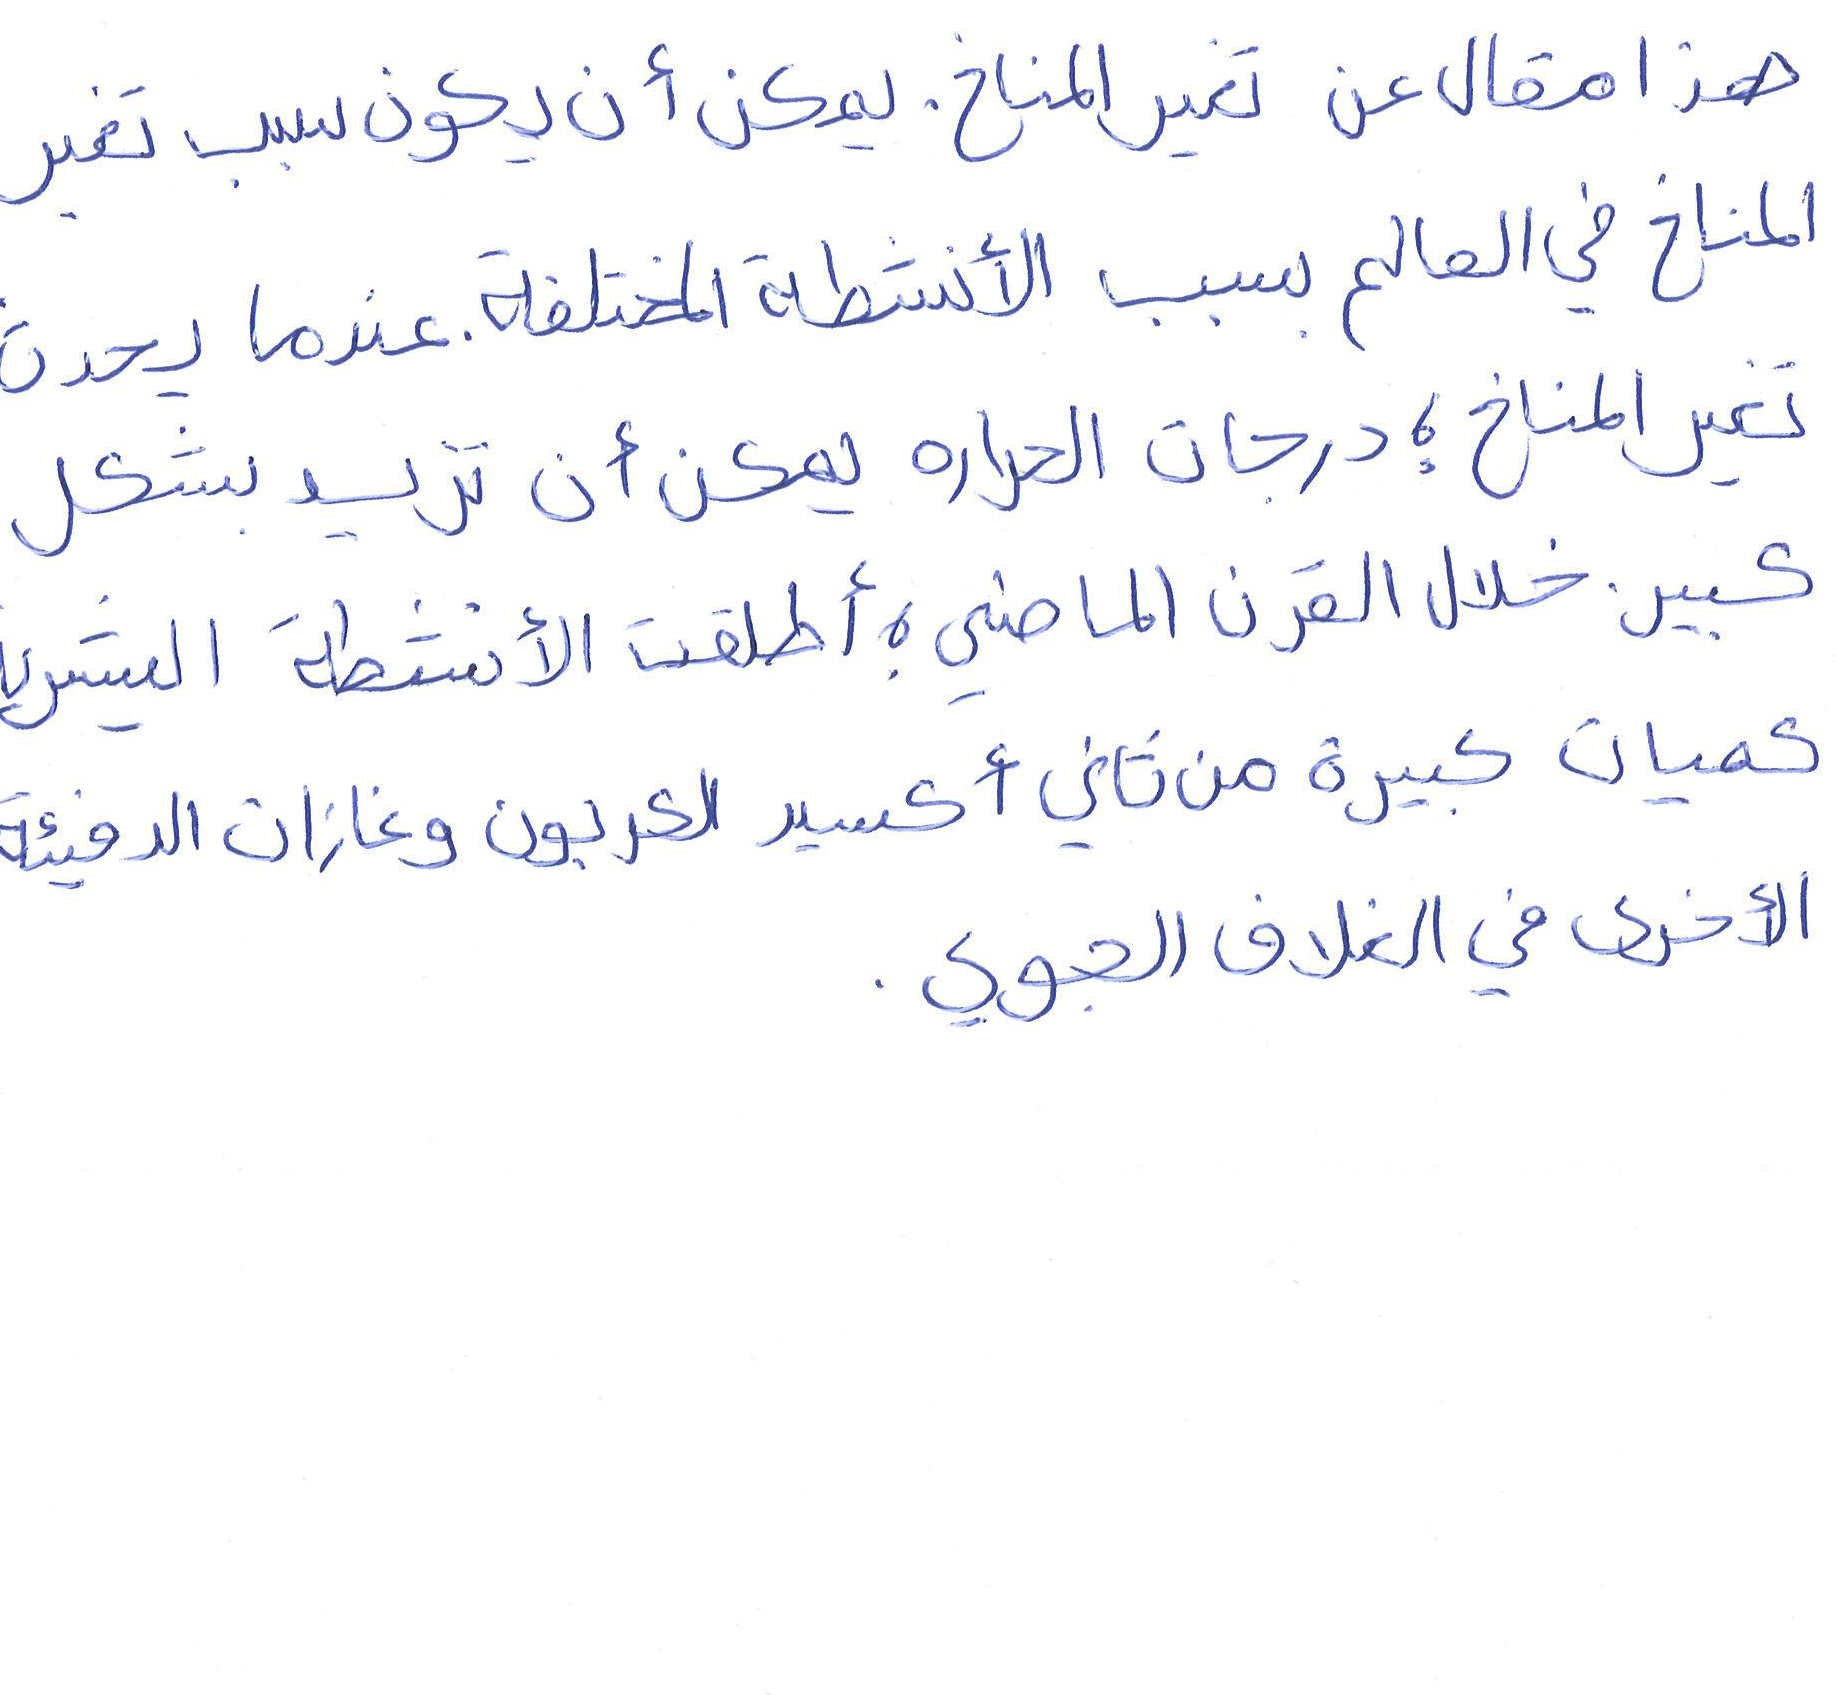 هذا مقال عن تغير المناخ. يمكن أن يكون سبب تغير
المناخ في العالم بسبب الأنشطة المختلفة. عندما يحدث
تغير المناخ ؛ درجات الحراره يمكن أن تزيد بشكل
كبير. خلال القرن الماضي ؛ أطلقت الأنشطة البشرية
كميات كبيرة من ثاني أكسيد الكربون وغازات الدفيئة
الأخرى في الغلاف الجوي .